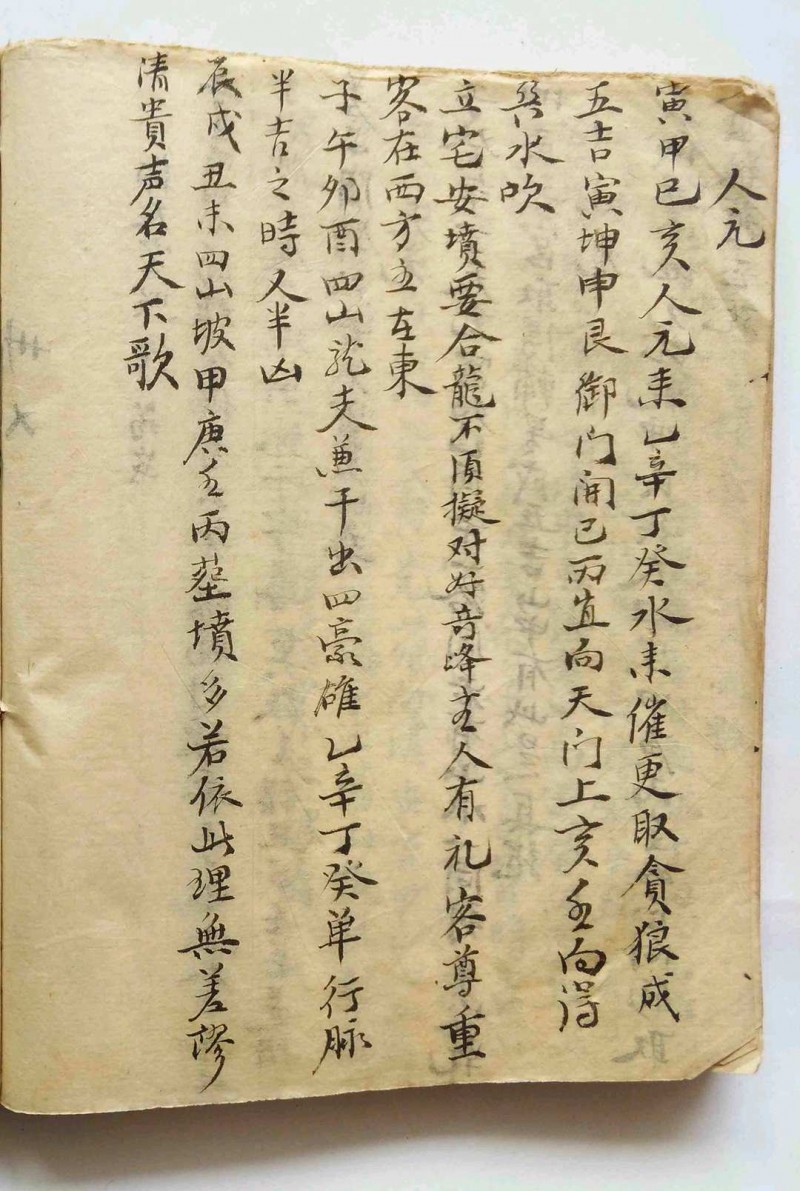 人元
寅甲巳亥人元来乙辛丁癸水来催更取貪狼成
五吉寅坤申艮御门開巳丙宜向天门上亥壬向得
巽水吹
立宅安墳要合龍不須擬对好奇峰主人有礼客尊重
客在西方主在東
子午卯酉四山龙夫兼干出四豪雄乙辛丁癸单行脉
半吉之時又半凶
辰戌丑未四山坡甲庚壬丙墓墳多若依此理無差謬
清貴声名天下歌